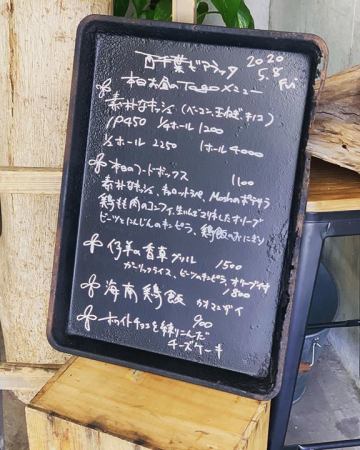 西千葉ビアラッタ
2020
5.8
Fri
本日お昼のTo goメニュー
素朴なキッシュ (ベーコン、玉ねぎ、キノコ)
1P450 1/4ホール 1200
1/2ホール 2250 1ホール 4000
本日のフードボックス 1100
素朴なキッシュ、キャロットラペ、Moshのポテサラ
鶏もも肉のコンフィ、オリーブ
ビーツとにんじんのキンピラ、鶏飯のおにぎり
仔羊の香草グリル 1500
ガーリックライス、ビーツのキンピラ、オリーブ付
海南鶏飯 カオマンガイ 1800
ホワイトチョコを練りこんだ 900
チーズケーキ